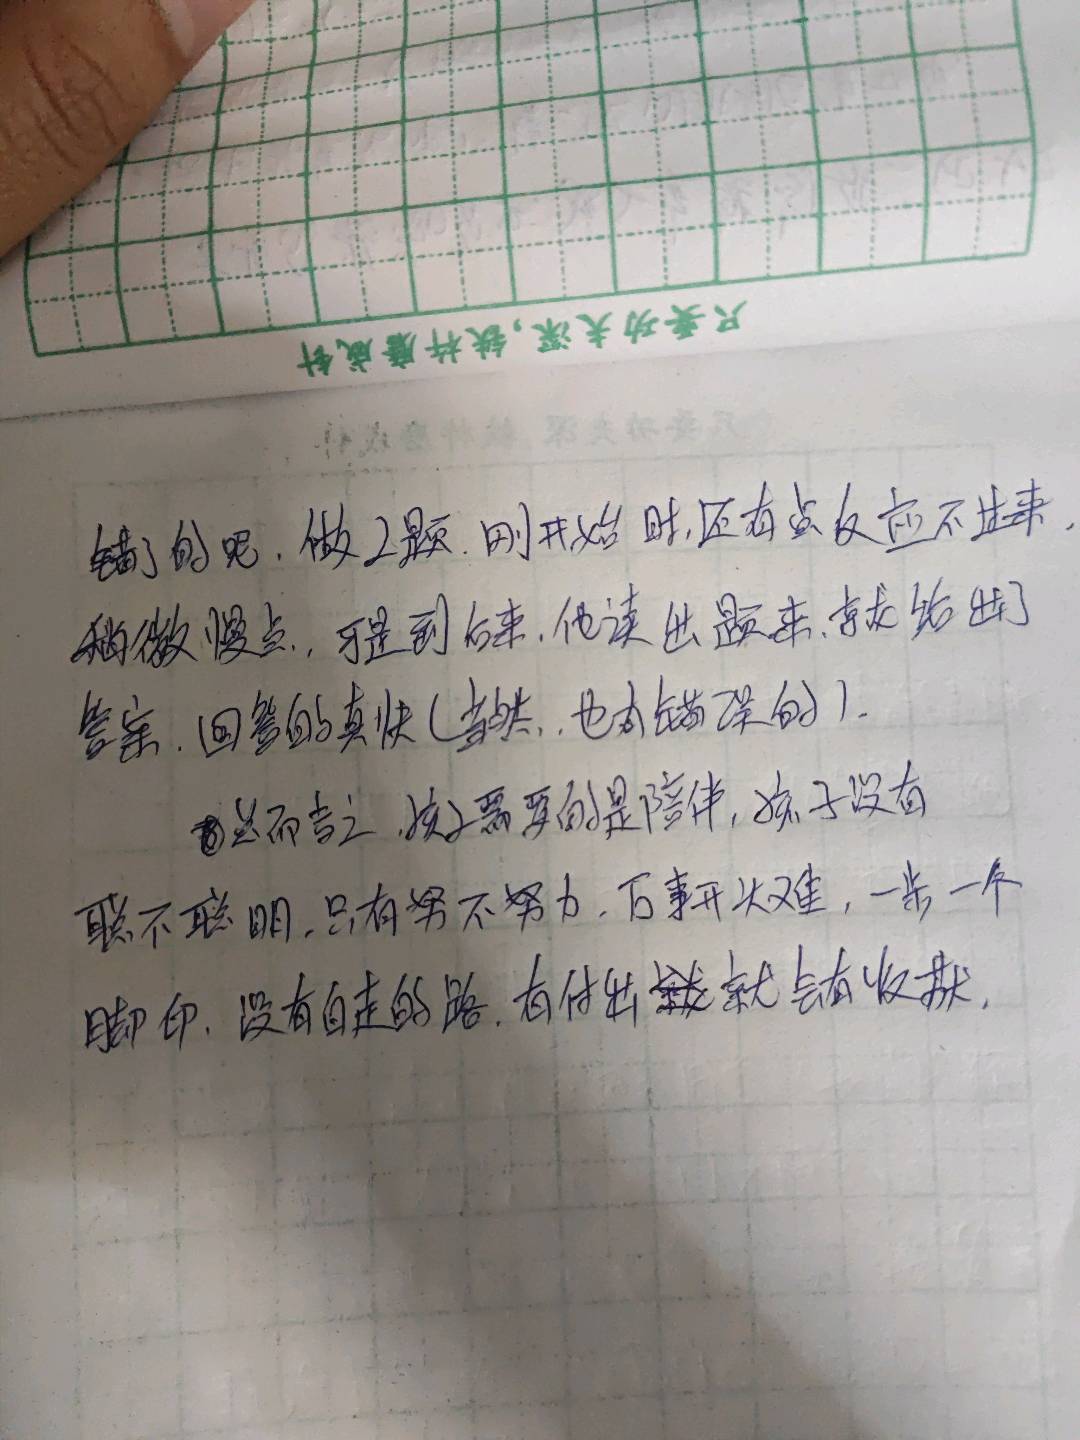 只要功夫深,铁杵磨成针
错了的呢,做了题.刚开始时,还有点反应不过来,
稍微慢点,,可是到后来,他读出题来,就给出了
答案,回答的真快(当然,也有错误的).
总而言之,孩子需要的是陪伴,孩子没有
聪不聪明,只有努不努力,万事开头难,一步一个
脚印,没有白走的路,有付出就会有收获,